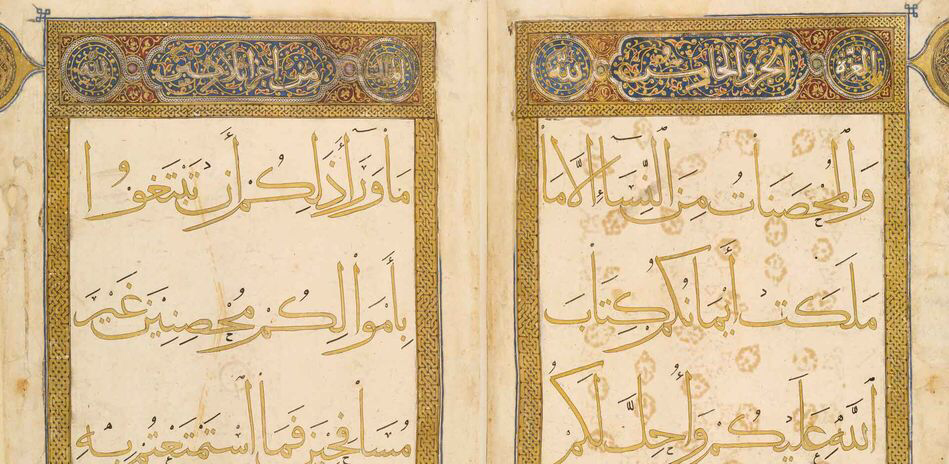 العزة الجزو الخامس لله
وَالْمُحْصَنَاتُ مِنَ النِّسَاءِ إِلَّا مَا
مَلَكَتْ أَيْمَانُكُمْ كِتَابَ
اللَّهِ عَلَيْكُمْ وَأُحِلَّ لَكُمْ
من اجزا ثلاثين لله
مَا وَرَاءَ ذَلِكُمْ أَنْ تَبْتَغُوا
بِأَمْوَالِكُمْ مُحْصِنِينَ غَيْرَ
مُسَافِحِينَ فَمَا اسْتَمْتَعْتُمْ بِهِ